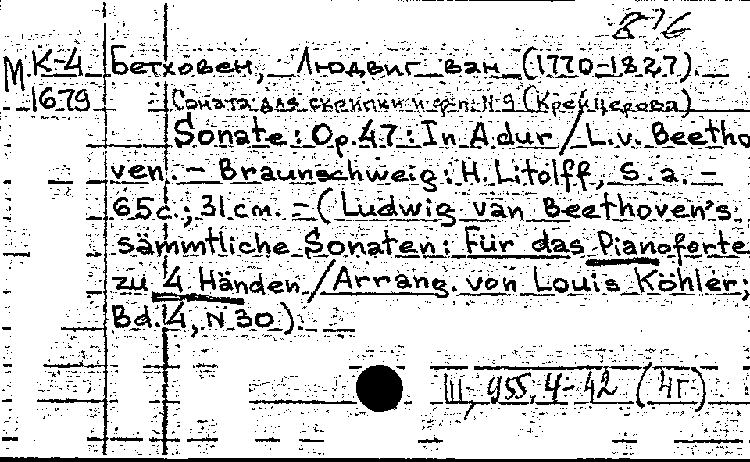 876
М К-4 Бетховен, Людвиг ван (1770-1827).
1679 Соната для скрипки и ф-п. N 9 (Крейцерова)
Sonate: Op. 47: In A dur / L. v. Beetho-
ven. - Braunschweig: H. Litolff, S. a. -
65 с.; 31 cm. = (Ludwig van Beethoven's
sämmtliche Sonaten: Für das Pianoforte
zu 4 Händen / Arrang. von Louis Köhler;
Bd. 4, N 30).
III, 955, 4-42 (4г)